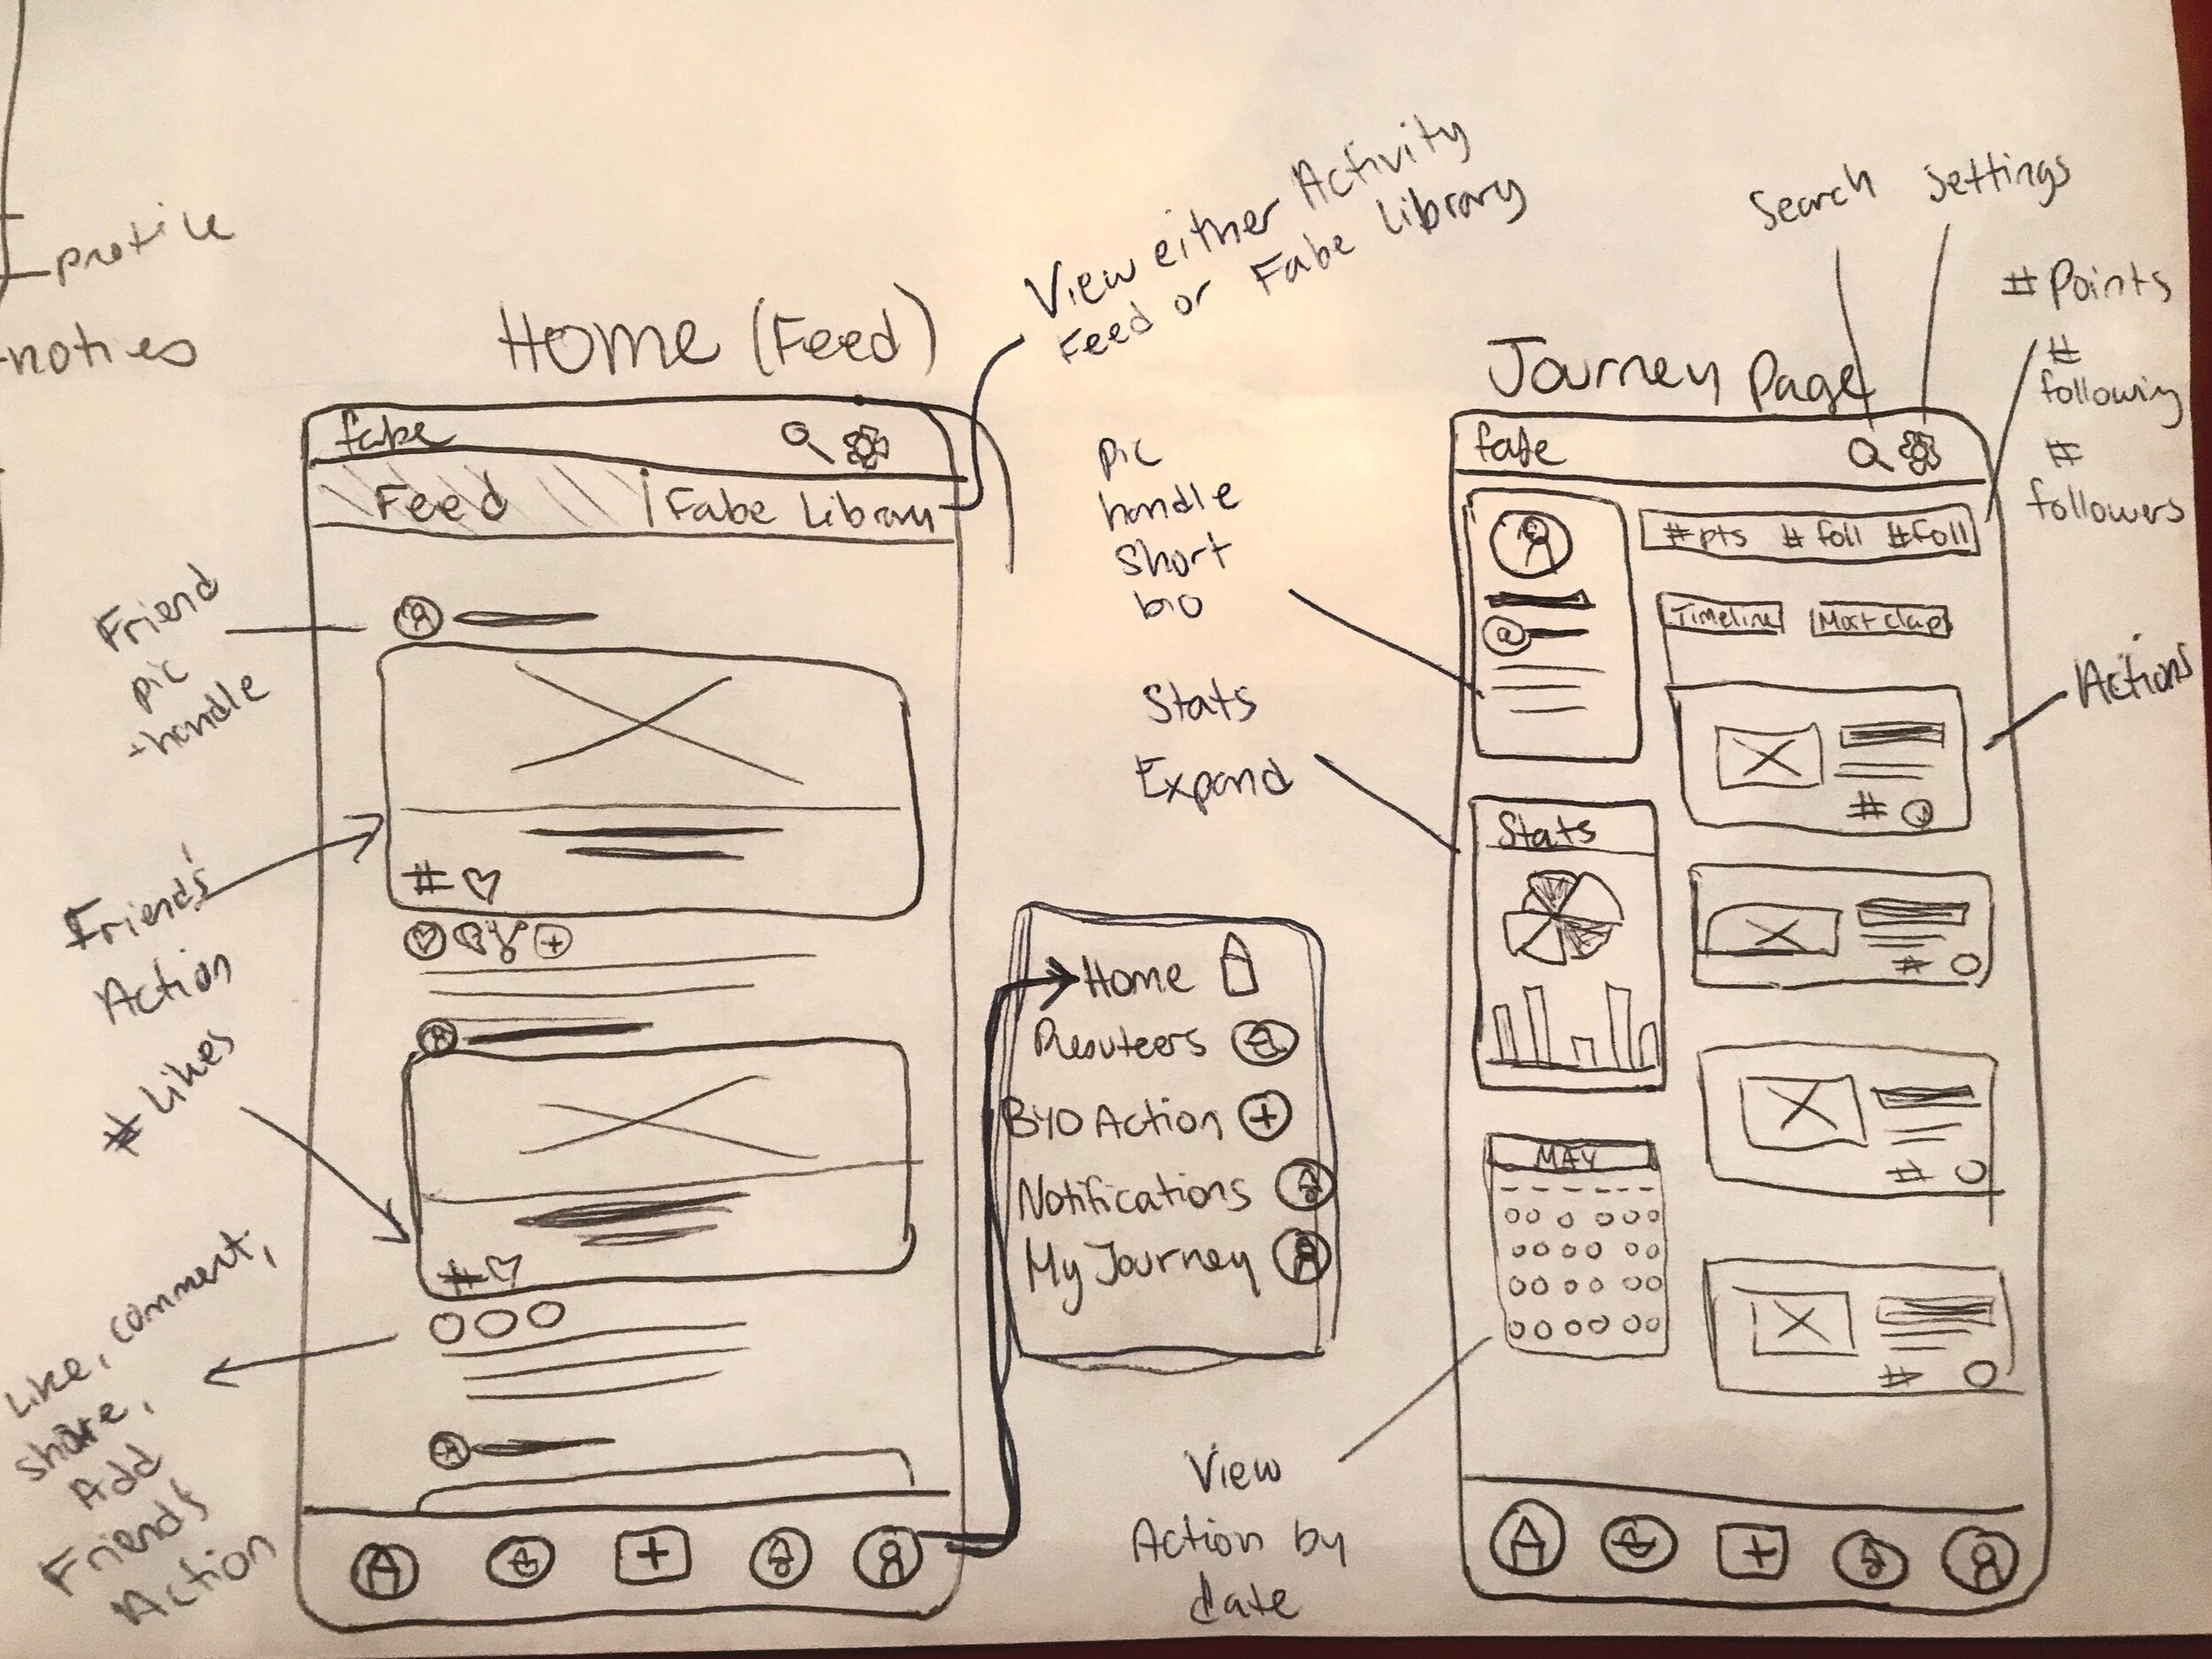 noties
Home (Feed)
fabe
Feed
Fabe Library
View either Activity
Feed or Fabe Library
Friend
pic
+handle
Friend's
Action
# Likes
#
#
Like, comment,
share,
Add
Friend's
Action
Home
BYO Action
Notifications
My Journey
Journey Page
Search
Settings
# Points
#
following
#
followers
fabe
#pts #foll #foll
Timeline
Most clap
pic
handle
short
bio
@
Stats
Expand
Actions
Stats
#
#
#
#
MAY
View
Action by
date